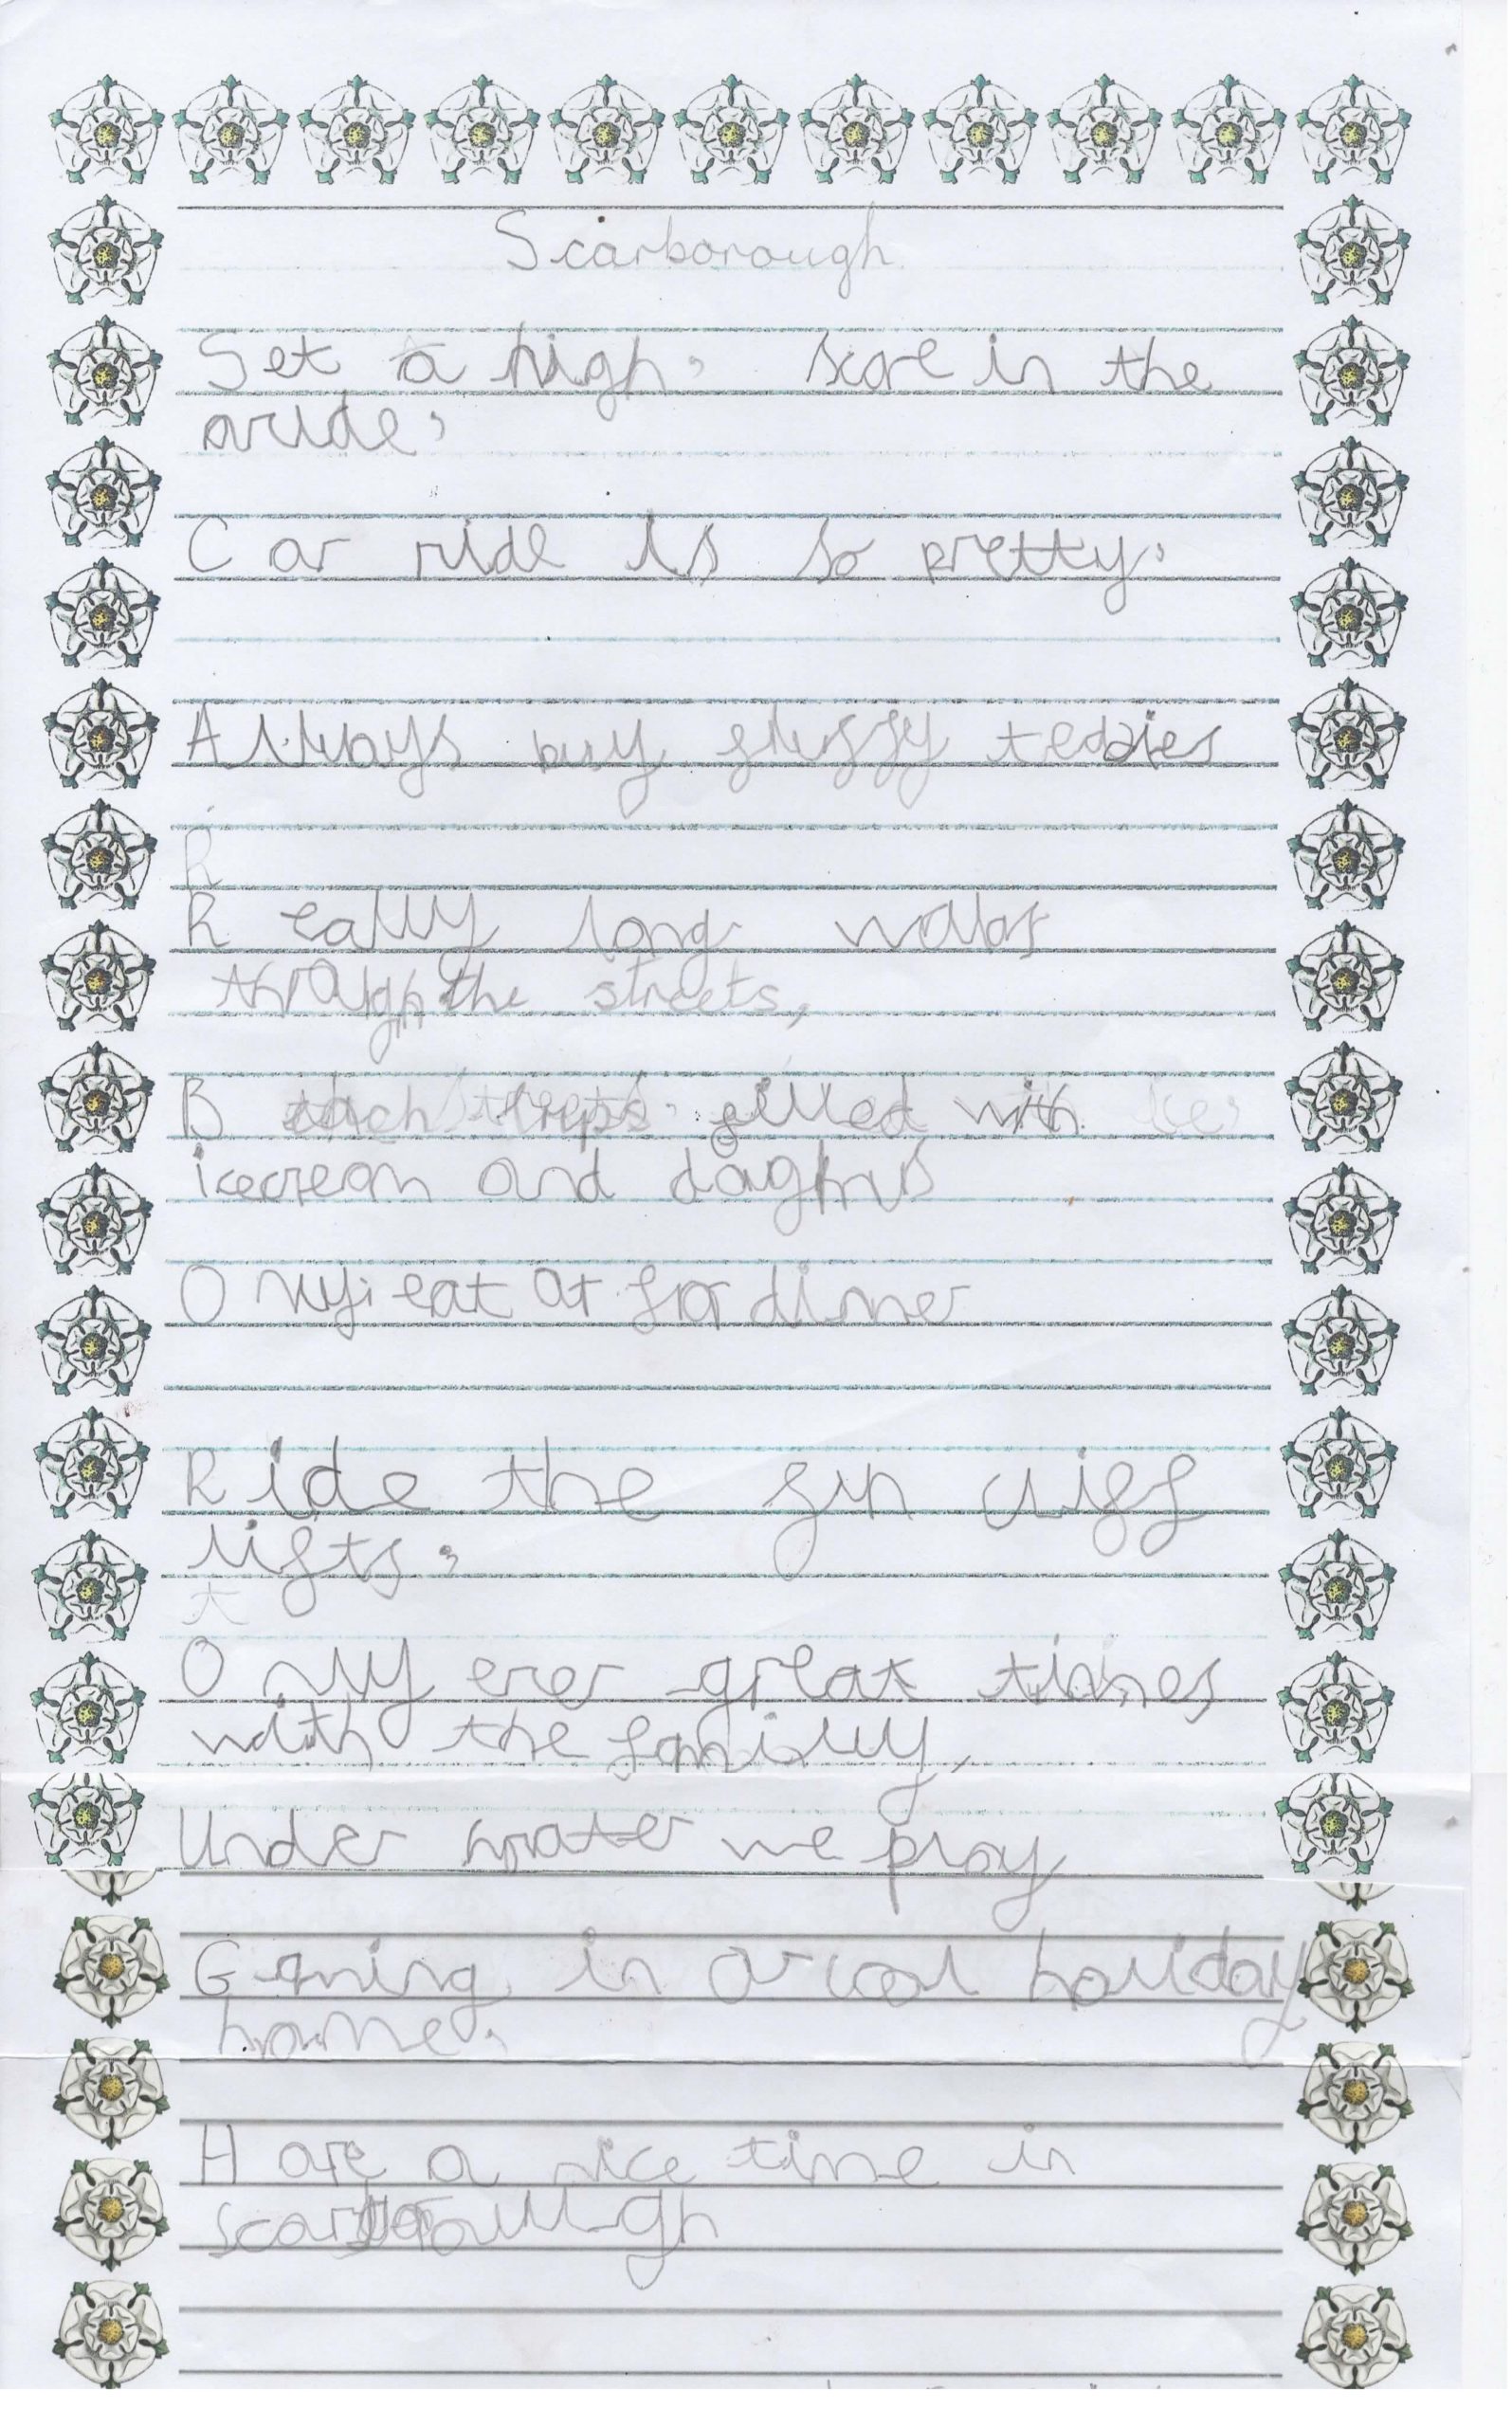 Scarborough
Set a high score in the
aride.
Car ride is so pretty.
Always buy fluffy teddies
R
Really long walks
through the streets,
B each trips filled with ice
icecream and doghnus
Onlyi eat at for dinner
Ride the fun cliff
lifts.
t
Only ever great times
with the family,
Under water we pray
Gaming in a cool holiday
home.
Have a nice time in
scarborough